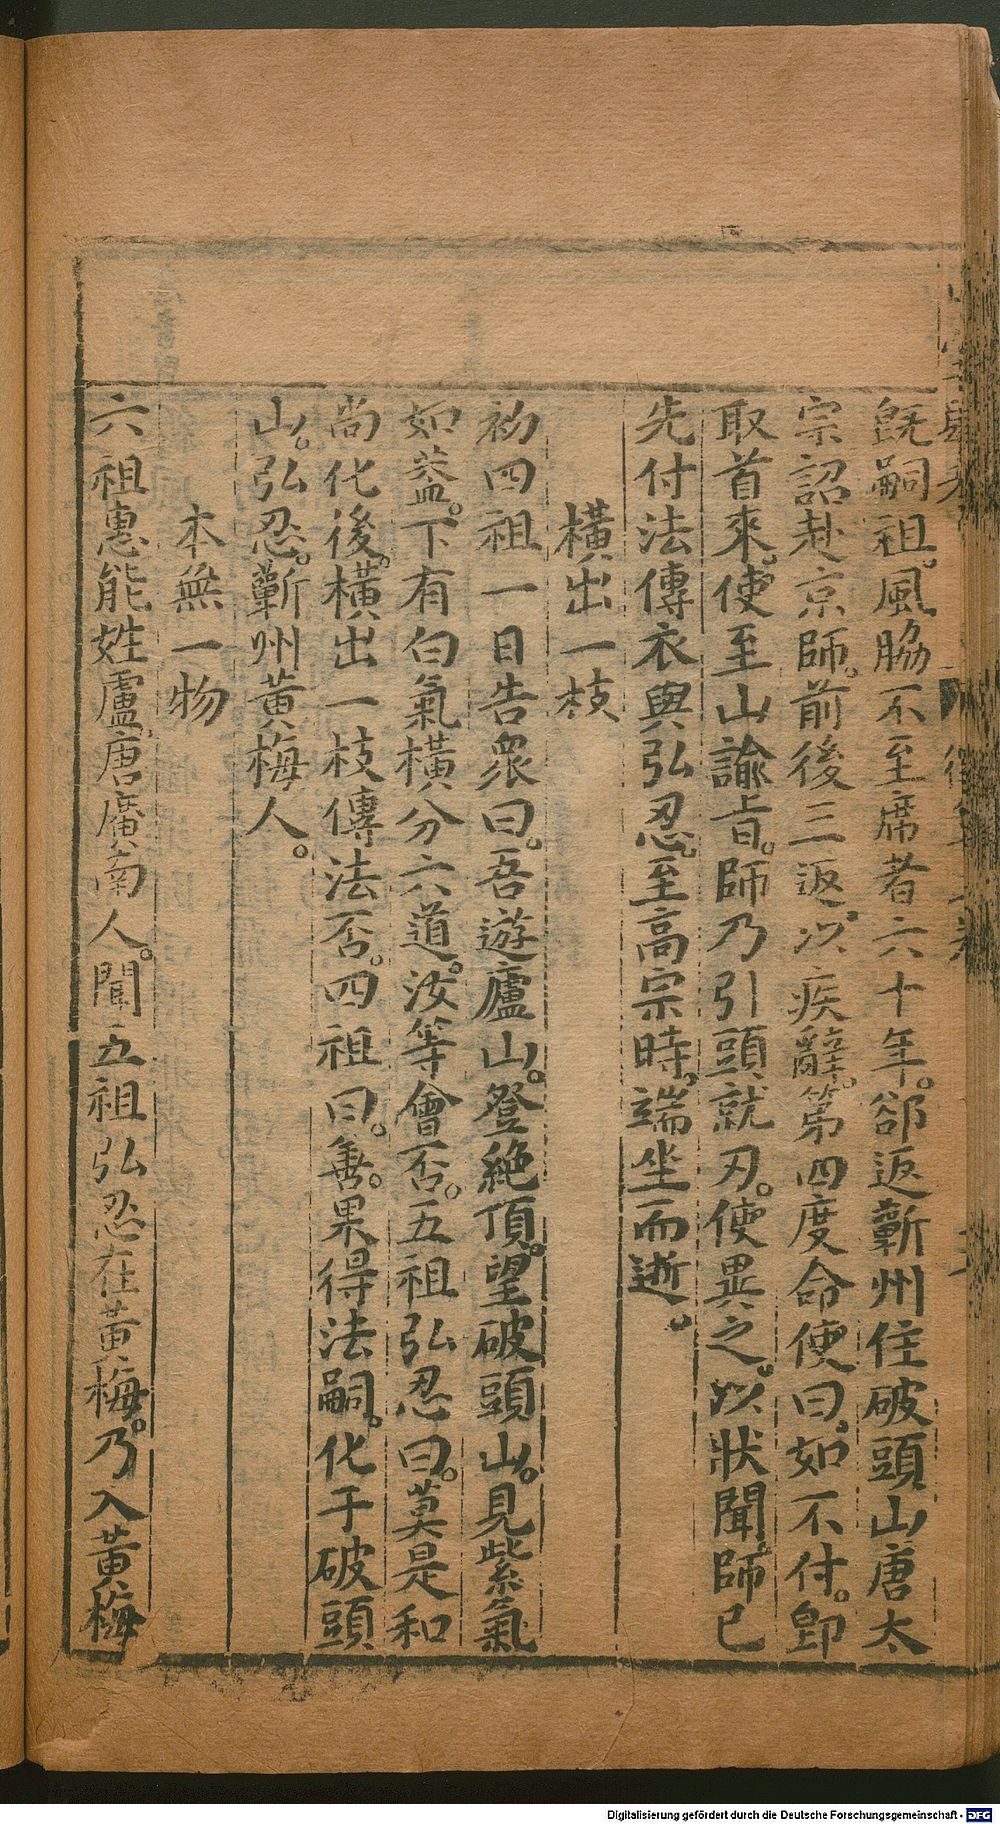 既嗣祖。風脇不至席者六十年。郤返蘄州住破頭山唐太
宗詔赴京師。前後三返。以疾辭。第四度命使曰。如不付。卽
取首來。使至山諭旨。師乃引頭就刃。使異之。以狀聞。師已
先付法傳衣與弘忍。至高宗時。端坐而逝。
橫出一枝
初四祖一日告衆曰。吾遊廬山。登絶頂。望破頭山。見紫氣
如葢。下有白氣橫分六道。汝等會否。五祖弘忍曰。莫是和
尚化後。橫出一枝傳法否。四祖曰。善。果得法嗣。化于破頭
山。弘忍。蘄州黃梅人。
本無一物
六祖惠能姓盧唐廣南人。聞五祖弘忍在黃梅。乃入黃梅
Digitalisierung gefördert durch die Deutsche Forschungsgemeinschaft - DFG